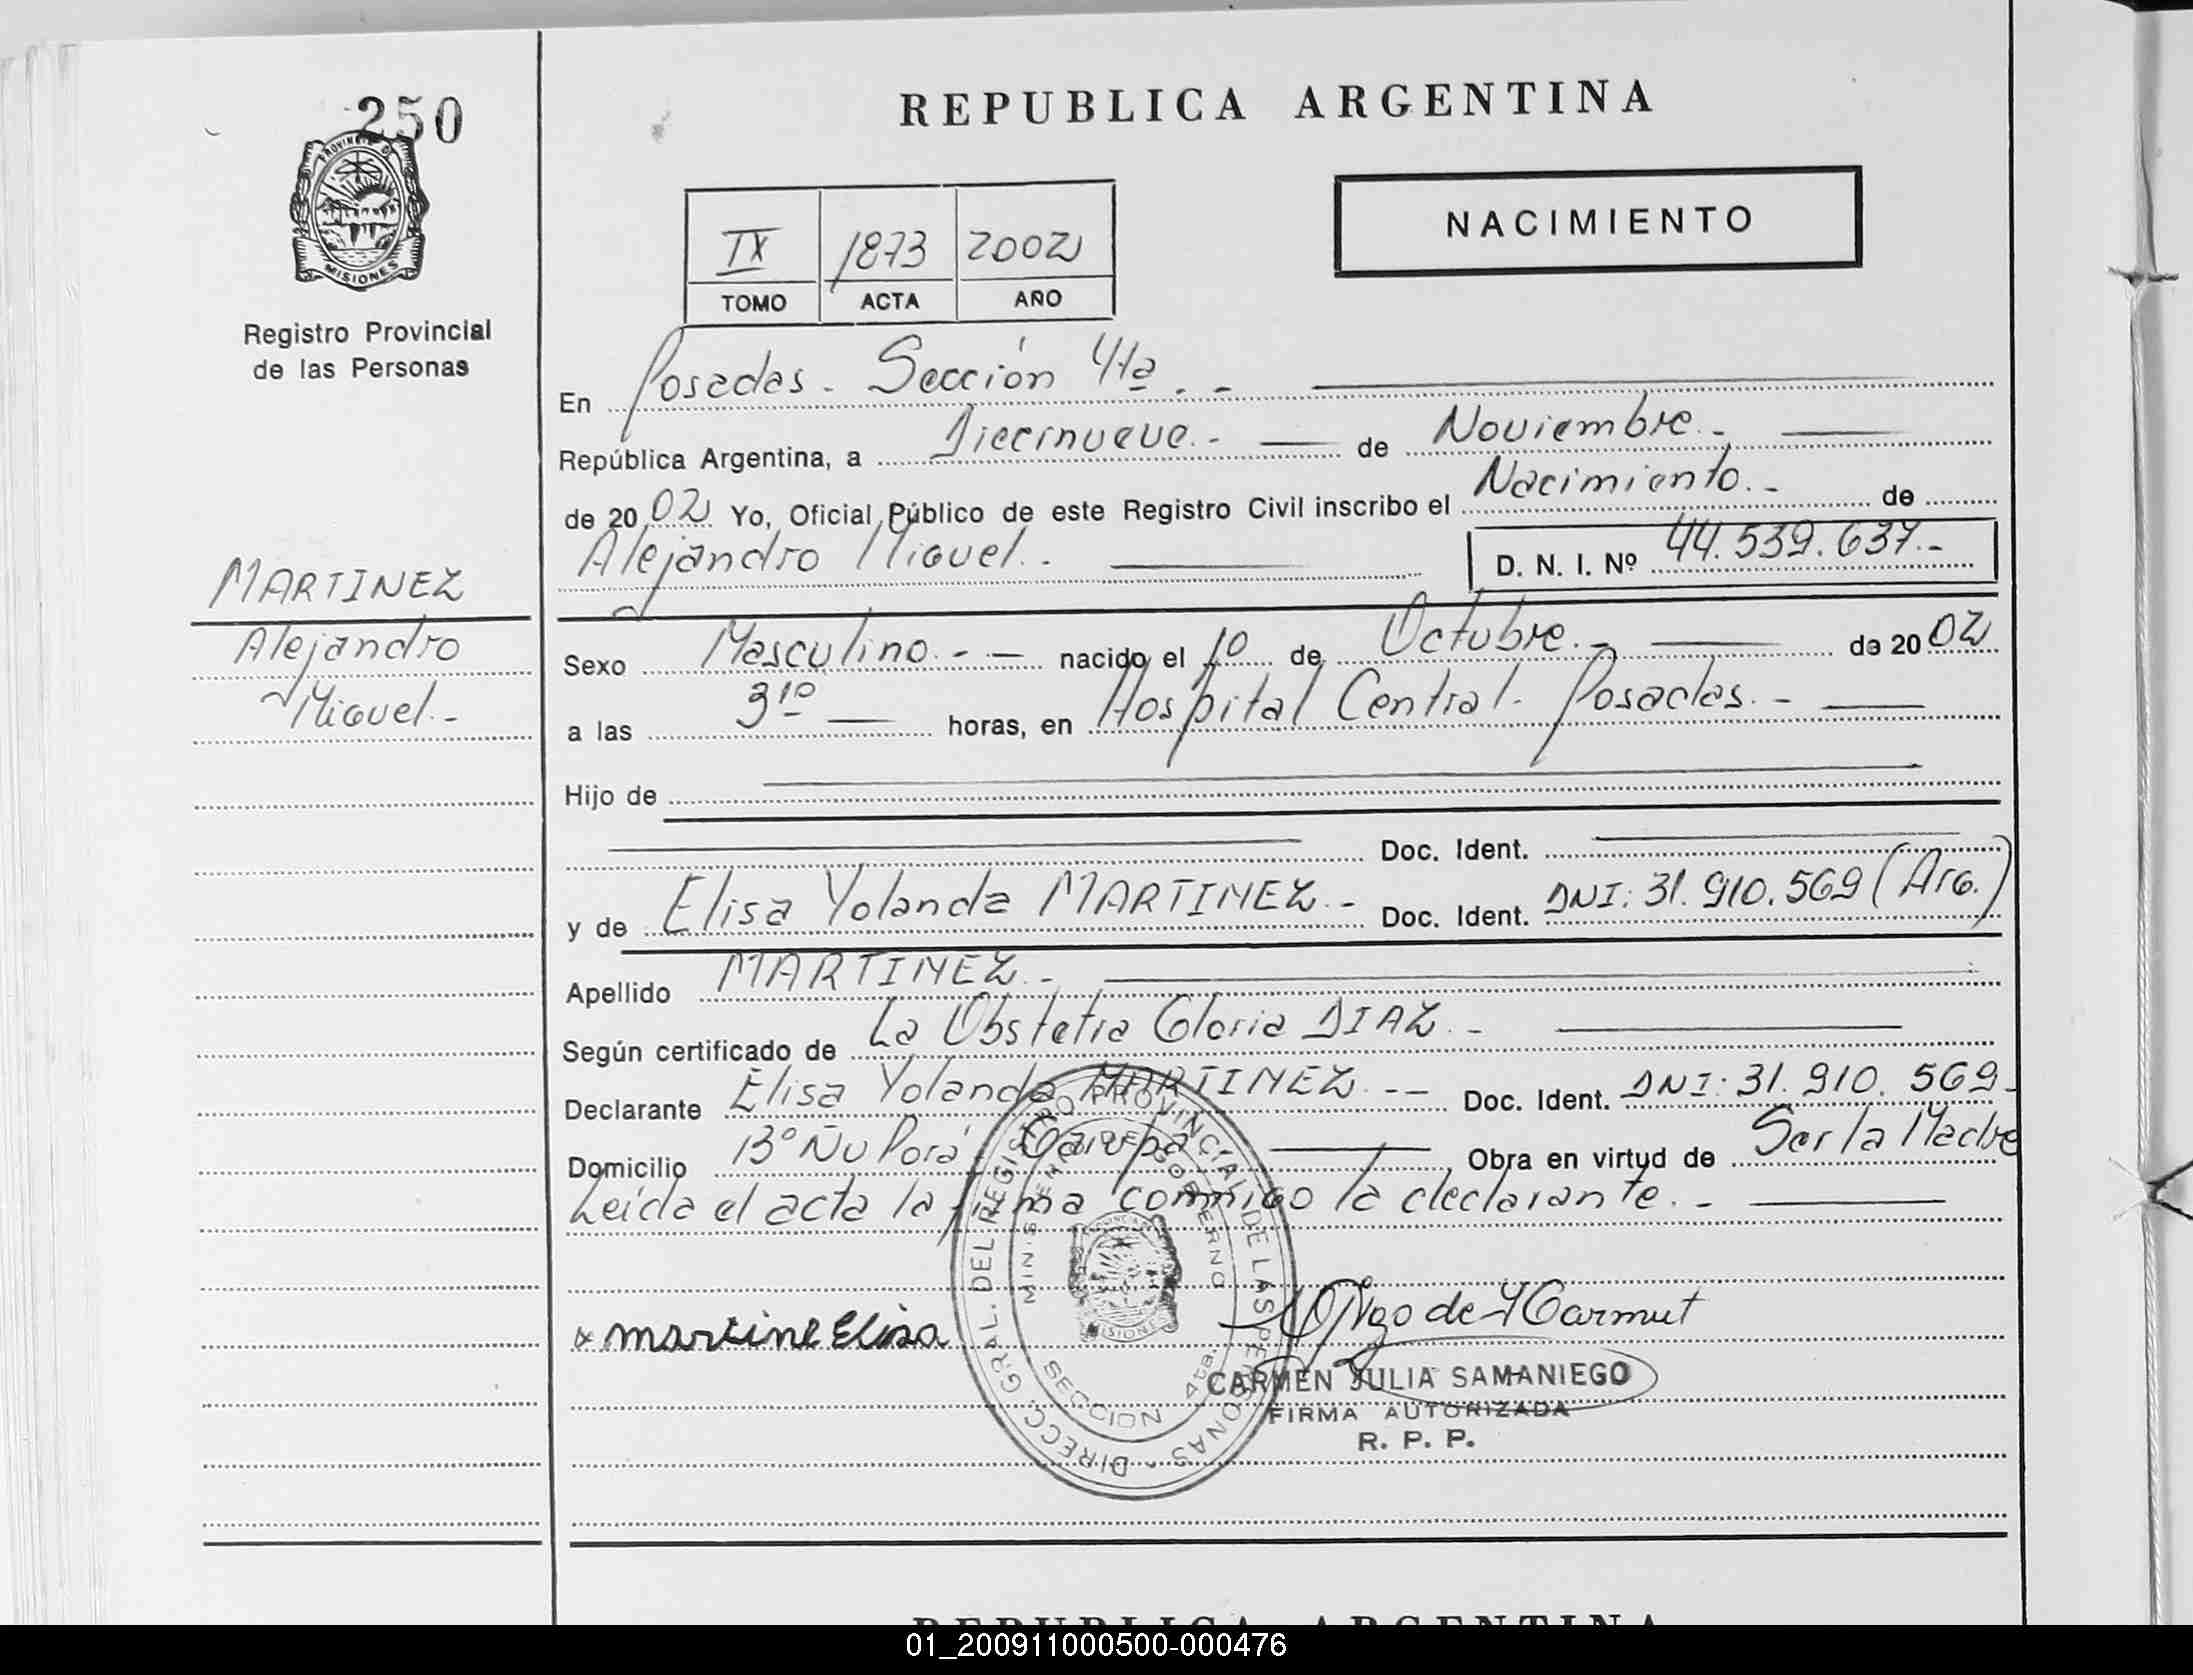 250
PROVINCIA D
MISIONES
Registro Provincial
de las Personas
MARTINEZ
Alejandro
Miguel.-
REPUBLICA ARGENTINA
NACIMIENTO
IX 1873 2002
TOMO ACTA AÑO
En Posadas. Sección 4ta. -
República Argentina, a Diecinueve.- de Noviembre.-
de 2002 Yo, Oficial Público de este Registro Civil inscribo el Nacimiento.- de
Alejandro Miguel.- D. N. I. Nº 44.539.637.-
Sexo Masculino. - - nacido el 1º de Octubre.- de 2002
a las 3¹⁰ horas, en Hospital Central. Posadas. -
Hijo de
Doc. Ident.
y de Elisa Yolanda MARTINEZ.- Doc. Ident. DNI: 31.910.569 (Arg.)
Apellido MARTINEZ.-
Según certificado de La Obstetra Gloria DIAZ.-
Declarante Elisa Yolanda MARTINEZ.-- Doc. Ident. DNI: 31.910.569-
Domicilio Bº Ñu Porá. Garupá Obra en virtud de Ser la Madre
Leída el acta la firma conmigo la declarante.-
martine Elisa
CARMEN JULIA SAMANIEGO
FIRMA AUTORIZADA
R. P. P.
DIRECC. GRAL. DEL REGISTRO PROVINCIAL DE LAS PERSONAS
MINISTERIO DE GOBIERNO
MISIONES
SECCION 4ta.
REPUBLICA ARGENTINA
01_200911000500-000476